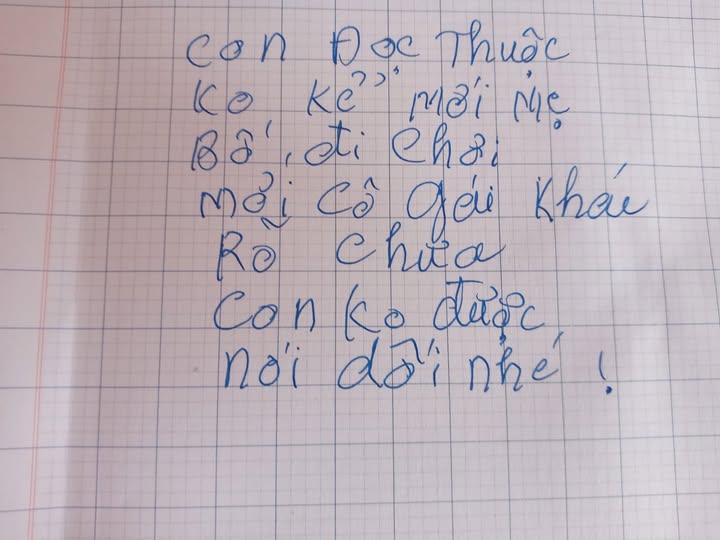 Con Đọc Thuộc
Ko kể mới mẹ
Bố, đi chơi
Mỏi cô gái khác
Rõ chưa
Con ko được
nói dối nhé !